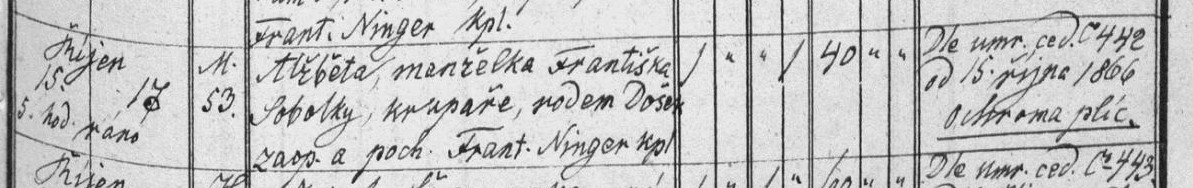 Frant. Ninger Kpl.
Říjen
15.
5. hod. ráno
17
M.
53.
Alžběta, manželka Františka
Sobotky, krupaře, rodem Došek
zaop. a poch. Frant. Ninger Kpl
/ " " / 40 " "
Dle umr. ced. Č 442
od 15. října 1866
Ochroma plic.
Říjen
Dle umr. ced. Č 443.